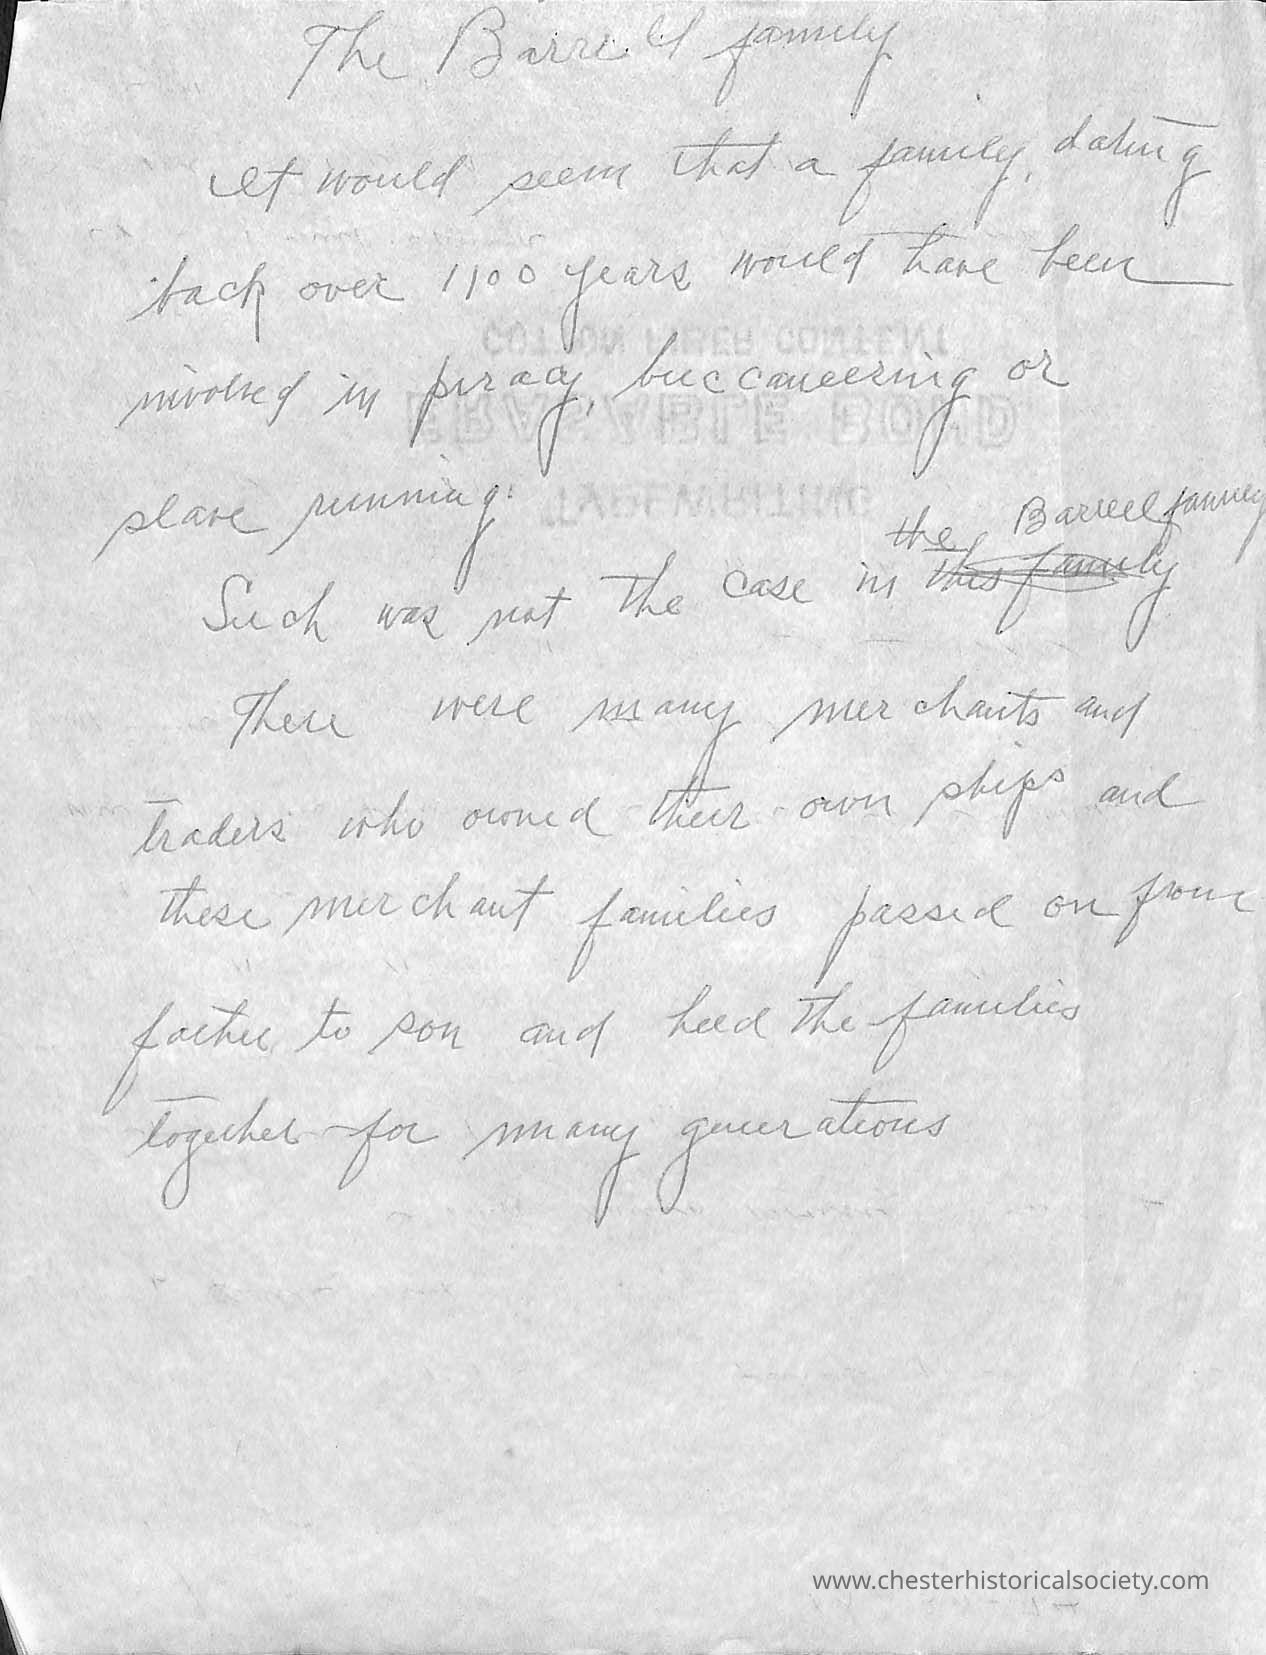 The Barrell family
It would seem that a family, dating
back over 1100 years would have been
involved in piracy, buccaneering or
slave running.
the Barrell family
Such was not the case in this family
There were many merchants and
traders who owned their own ships and
these merchant families passed on from
father to son and held the families
together for many generations
COTTON FIBER CONTENT
ERASABLE BOND
TYPEWRITING
www.chesterhistoricalsociety.com